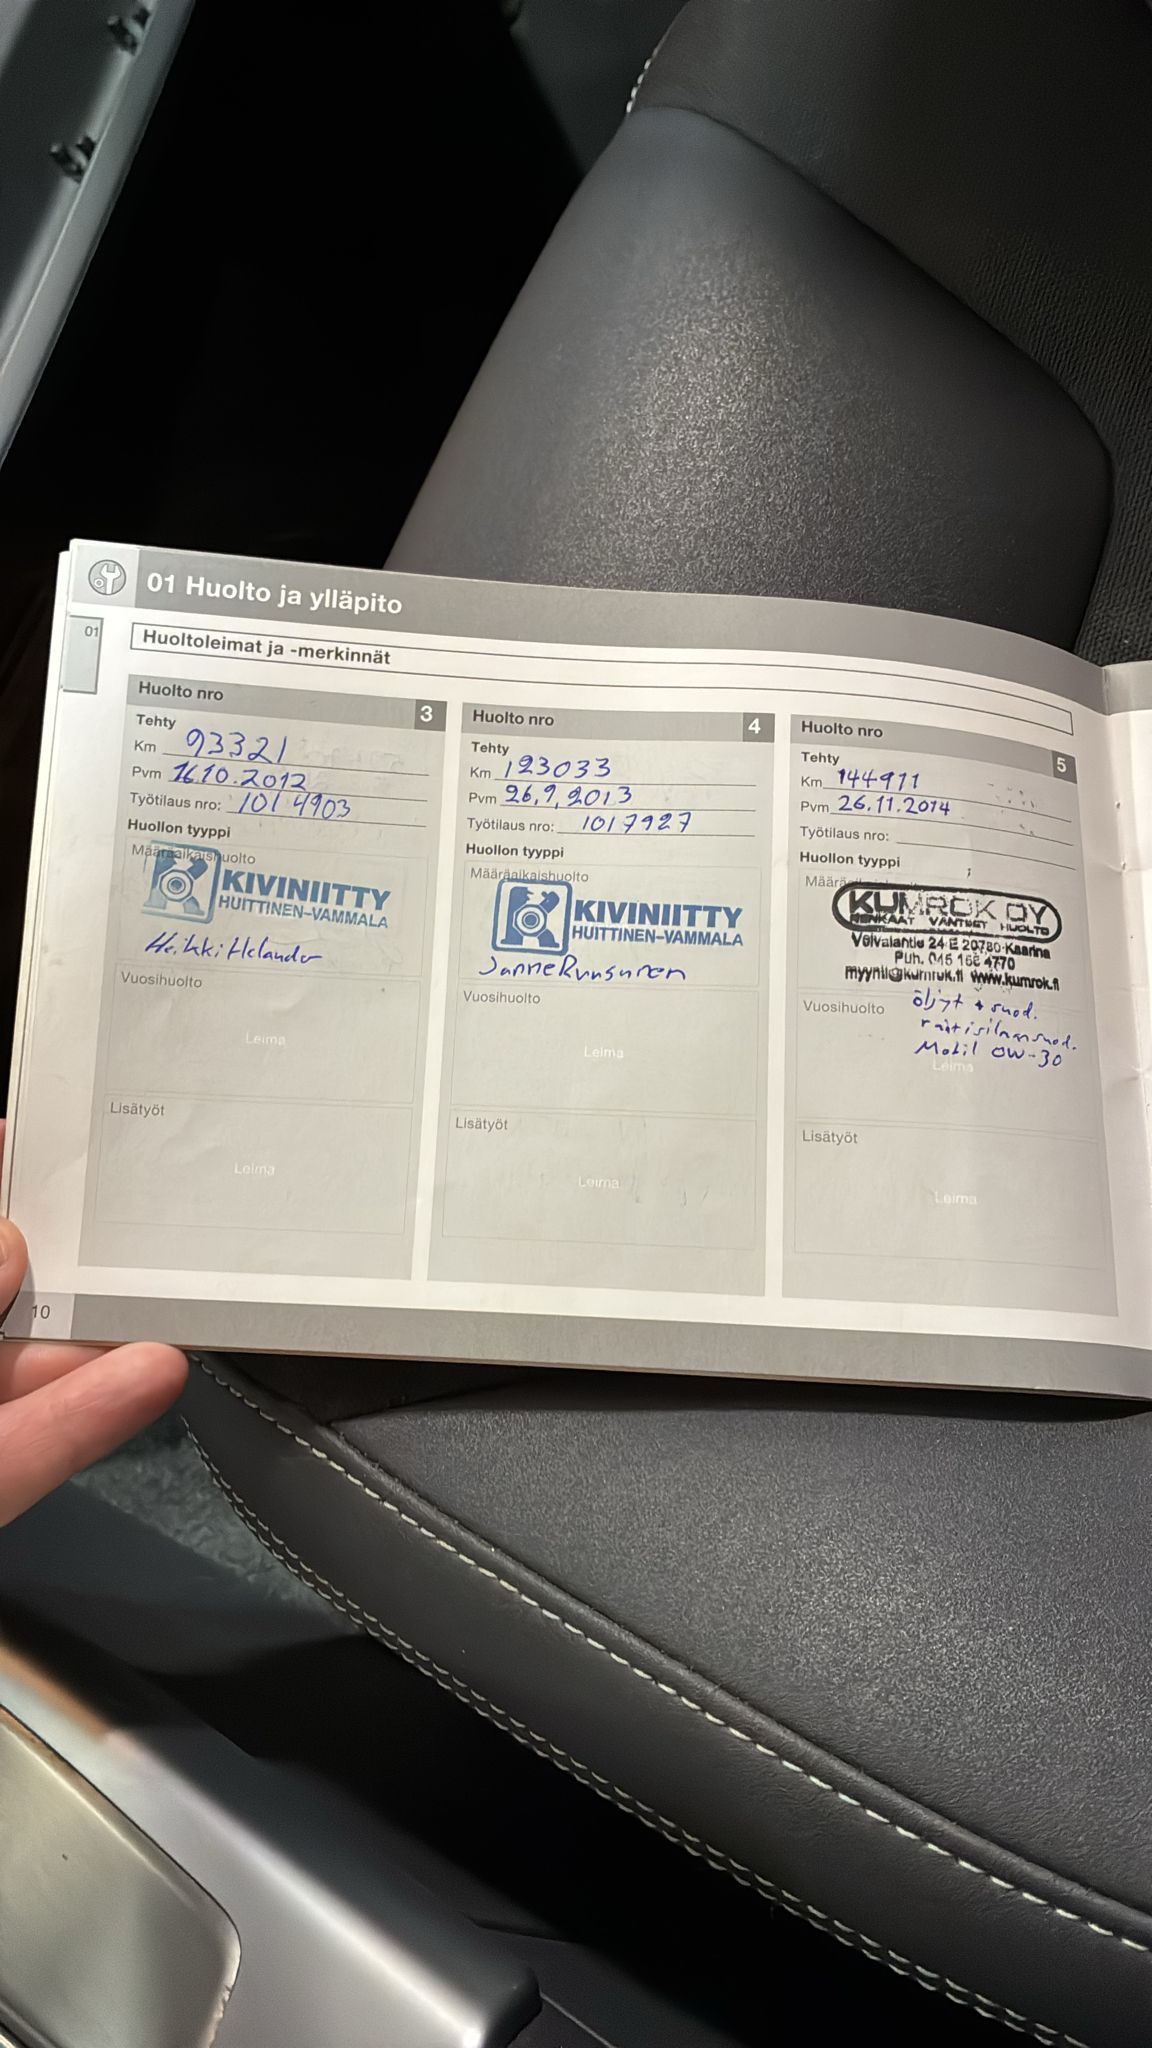 01 Huolto ja ylläpito
01
Huoltoleimat ja -merkinnät
Huolto nro 3
Tehty
Km 93321
Pvm 16.10.2012
Työtilaus nro: 1014903
Huollon tyyppi
Määräaikaishuolto
KIVINIITTY
HUITTINEN-VAMMALA
Heikki Helander
Vuosihuolto
Leima
Lisätyöt
Leima
Huolto nro 4
Tehty
Km 123033
Pvm 26.9.2013
Työtilaus nro: 1017927
Huollon tyyppi
Määräaikaishuolto
KIVINIITTY
HUITTINEN-VAMMALA
Janne Ruusunen
Vuosihuolto
Leima
Lisätyöt
Leima
Huolto nro 5
Tehty
Km 144911
Pvm 26.11.2014
Työtilaus nro:
Huollon tyyppi
KUMROK OY
RENKAAT VANTEET HUOLTO
24 E 20780 Kaarina
Puh. 4770
www.kumrok.fi
Vuosihuolto
öljyt + suod.
raitisilmansuod.
Mobil 0W-30
Leima
Lisätyöt
Leima
10